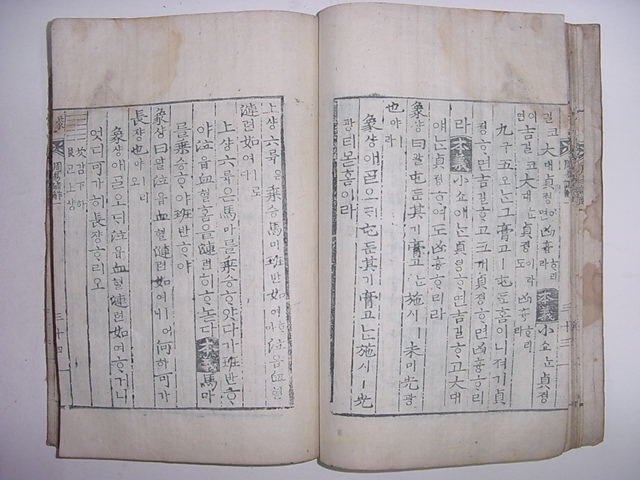 길코大대貞졍이면凶흉ᄒᆞ리라本義小쇼ᄂᆞᆫ貞졍
이면吉길코大대ᄂᆞᆫ貞졍이라凶흉ᄒᆞ리라
九구五오ᄂᆞᆫ그膏고ㅣ屯둔홈이니져기貞
졍ᄒᆞ면吉길ᄒᆞ고크게貞졍ᄒᆞ면凶흉ᄒᆞ리
라本義小쇼애ᄂᆞᆫ貞졍ᄒᆞ면吉길ᄒᆞ고大대
애ᄂᆞᆫ貞졍ᄒᆞ여도凶흉ᄒᆞ리라
象샹曰왈屯둔其기膏고ᄂᆞᆫ施시ㅣ未미光광
也야ㅣ라
象샹애ᄀᆞᆯ오ᄃᆡ屯둔其기膏고ᄂᆞᆫ施시ㅣ光
광티몯홈이라
三十三
上샹六륙은乘승馬마班반如여ᄒᆞ야泣읍血혈
漣련如여ㅣ로다
上샹六륙은馬마를乘승ᄒᆞ얏다가班반ᄒᆞ
야泣읍血혈홈을漣련히ᄒᆞ놋다本義馬마
를乘승ᄒᆞ야班반ᄒᆞ야
象샹曰왈泣읍血혈漣련如여ㅣ어니何하可가
長쟝也야ㅣ리오
象샹애ᄀᆞᆯ오ᄃᆡ泣읍血혈漣련如여ᄒᆞ거니
엇디可가히長쟝ᄒᆞ리오
坎감下하
艮간上샹
蒙
三十四